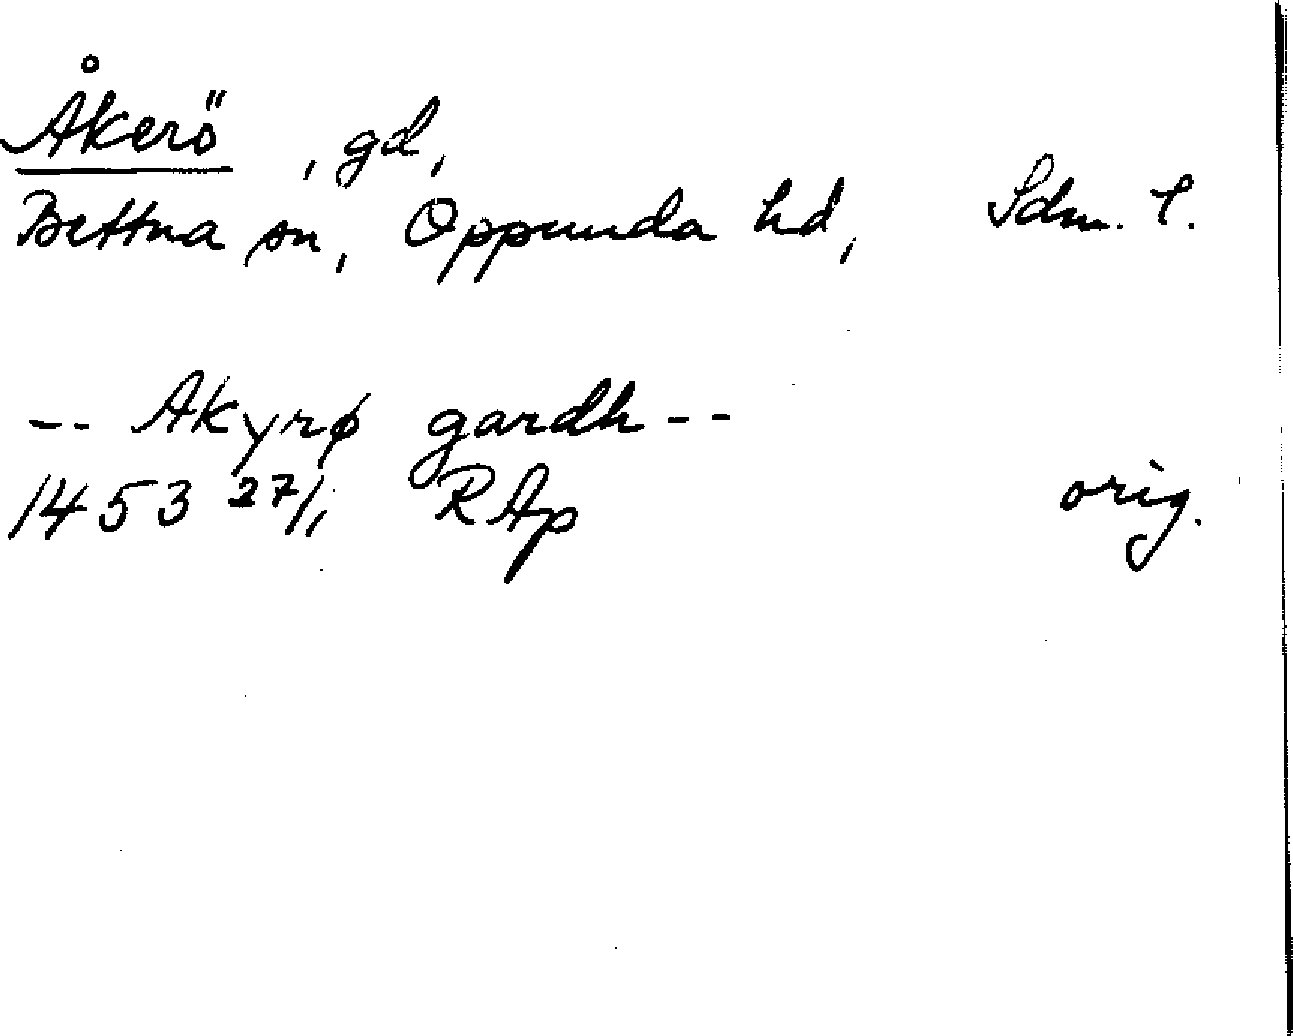 Åkerö, gd,
Bettna sn, Oppunda hd, Sdm. l.
-- Akyrø gardh --
1453 27/1 RAp orig.